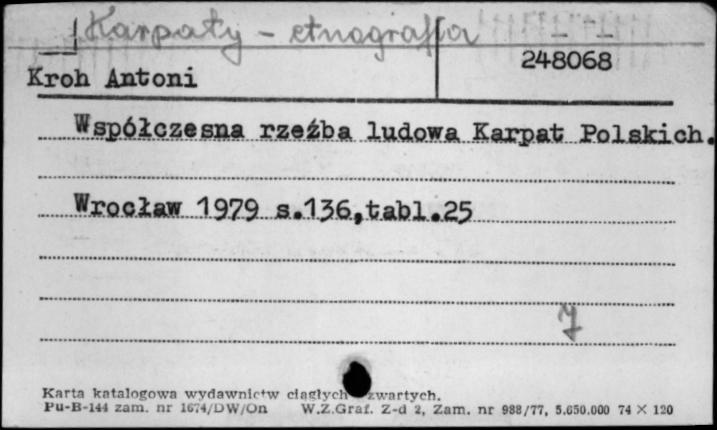 Karpaty - etnografia
248068
Kroh Antoni
Współczesna rzeźba ludowa Karpat Polskich.
Wrocław 1979 s.136,tabl.25
7
Karta katalogowa wydawnictw ciągłych zwartych.
Pu-B-144 zam. nr 1674/DW/On W.Z.Graf. Z-d 2, Zam. nr 988/77, 5.650.000 74 X 120